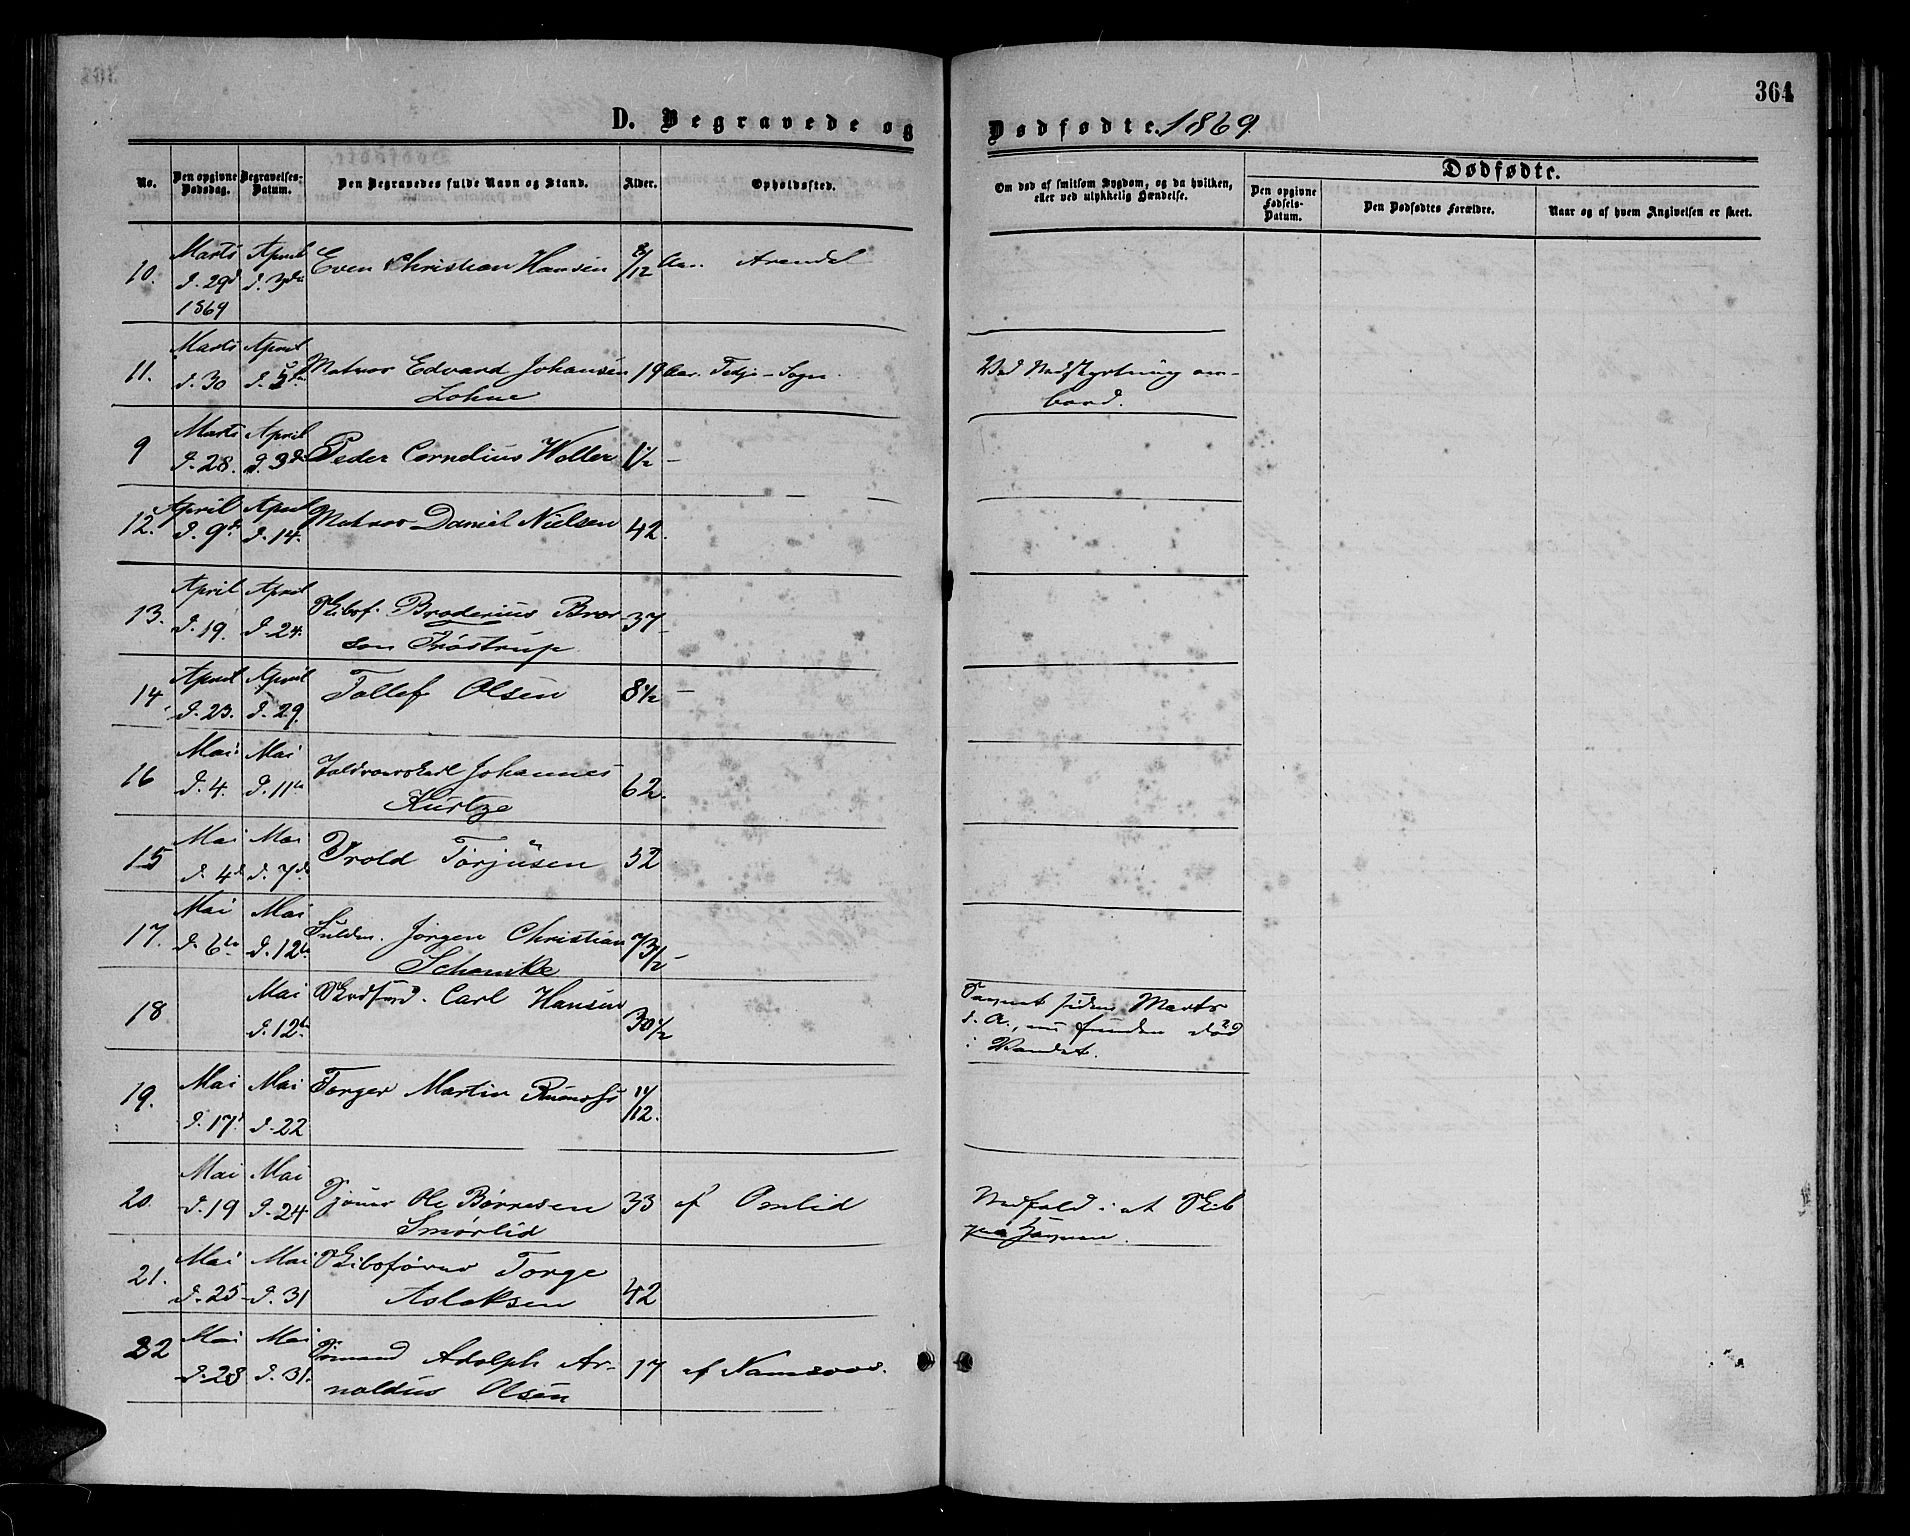 364
D. Begravede og Dødfødte. 1869.
No.
Den opgivne Dødsdag.
Begravelses-Datum.
Den Begravedes fulde Navn og Stand.
Alder.
Opholdssted.
Om død af smitsom Sygdom, og da hvilken, eller ved ulykkelig Hændelse.
Dødfødte.
Den opgivne Fødsels-Datum.
Den Dødfødtes Forældre.
Naar og af hvem Angivelsen er skeet.
10. Marts d. 29d 1869 April d. 3die Even Christian Hansen 8/12 Aar. Arendal
11. Marts d. 30 April d. 5te Matros Edvard Johansen 19 Aar. Sogn. Ved Nedstyrtning om-
Lohne bord.
9 Marts d. 28. April d. 3d Peder Cornelius Woller 1½ –
12. April d. 9d. April d. 14. Matros Daniel Nielsen 42.
13. April d. 19. April d. 24. Skibsf. Broderius Bror- 37
son Trøstrup.
14 April d. 23. April d. 29. Tollef Olsen 8½ –
16 Mai d. 4. Mai d. 11te Johannes 62.
Kurtze
15 Mai d. 4d Mai d. 7d. Trold Torjusen 52
17. Mai d. 6te Mai d. 12te Fuldm. Jørgen Christian 73½
Schanke
18 Mai d. 12te Carl Hansen 30½ Savnet siden Marts
d. A., nu funden død
i Vandet.
19. Mai d. 17d Mai d. 22 Torger Martin 11/12.
20. Mai d. 19 Mai d. 24 Ole Børresen 33 af Omlid Nedfald i et Skib
Smørlid paa Havnen.
21. Mai d. 25 Mai d. 31 Skibsfører Torge
Aslaksen 42
22 Mai d. 28 Mai d. 31. Sømand Adolph Ar- 17 af Namsoos.
noldus Olsen